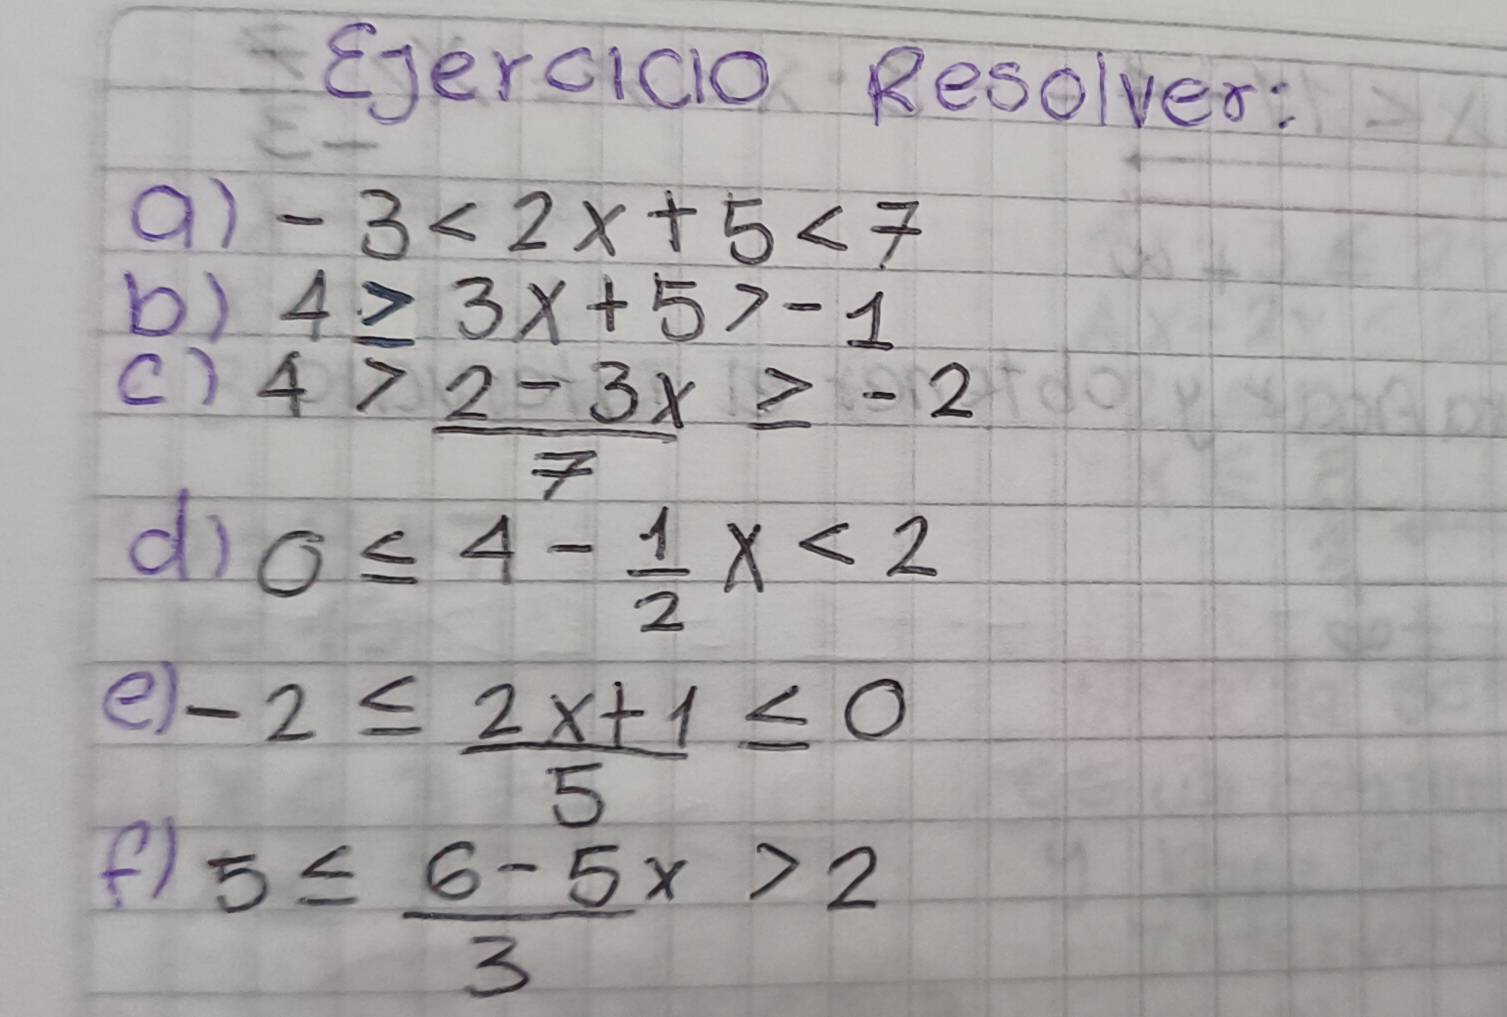 Ejercicio Resolver:
a) -3 < 2x + 5 < 7
b) 4 ≥ 3x + 5 > -1
c) 4 > 2 - 3x ≥ -2
7
d) 0 ≤ 4 - 1/2 x < 2
e) -2 ≤ 2x + 1 ≤ 0
5
f) 5 ≤ 6 - 5x > 2
3